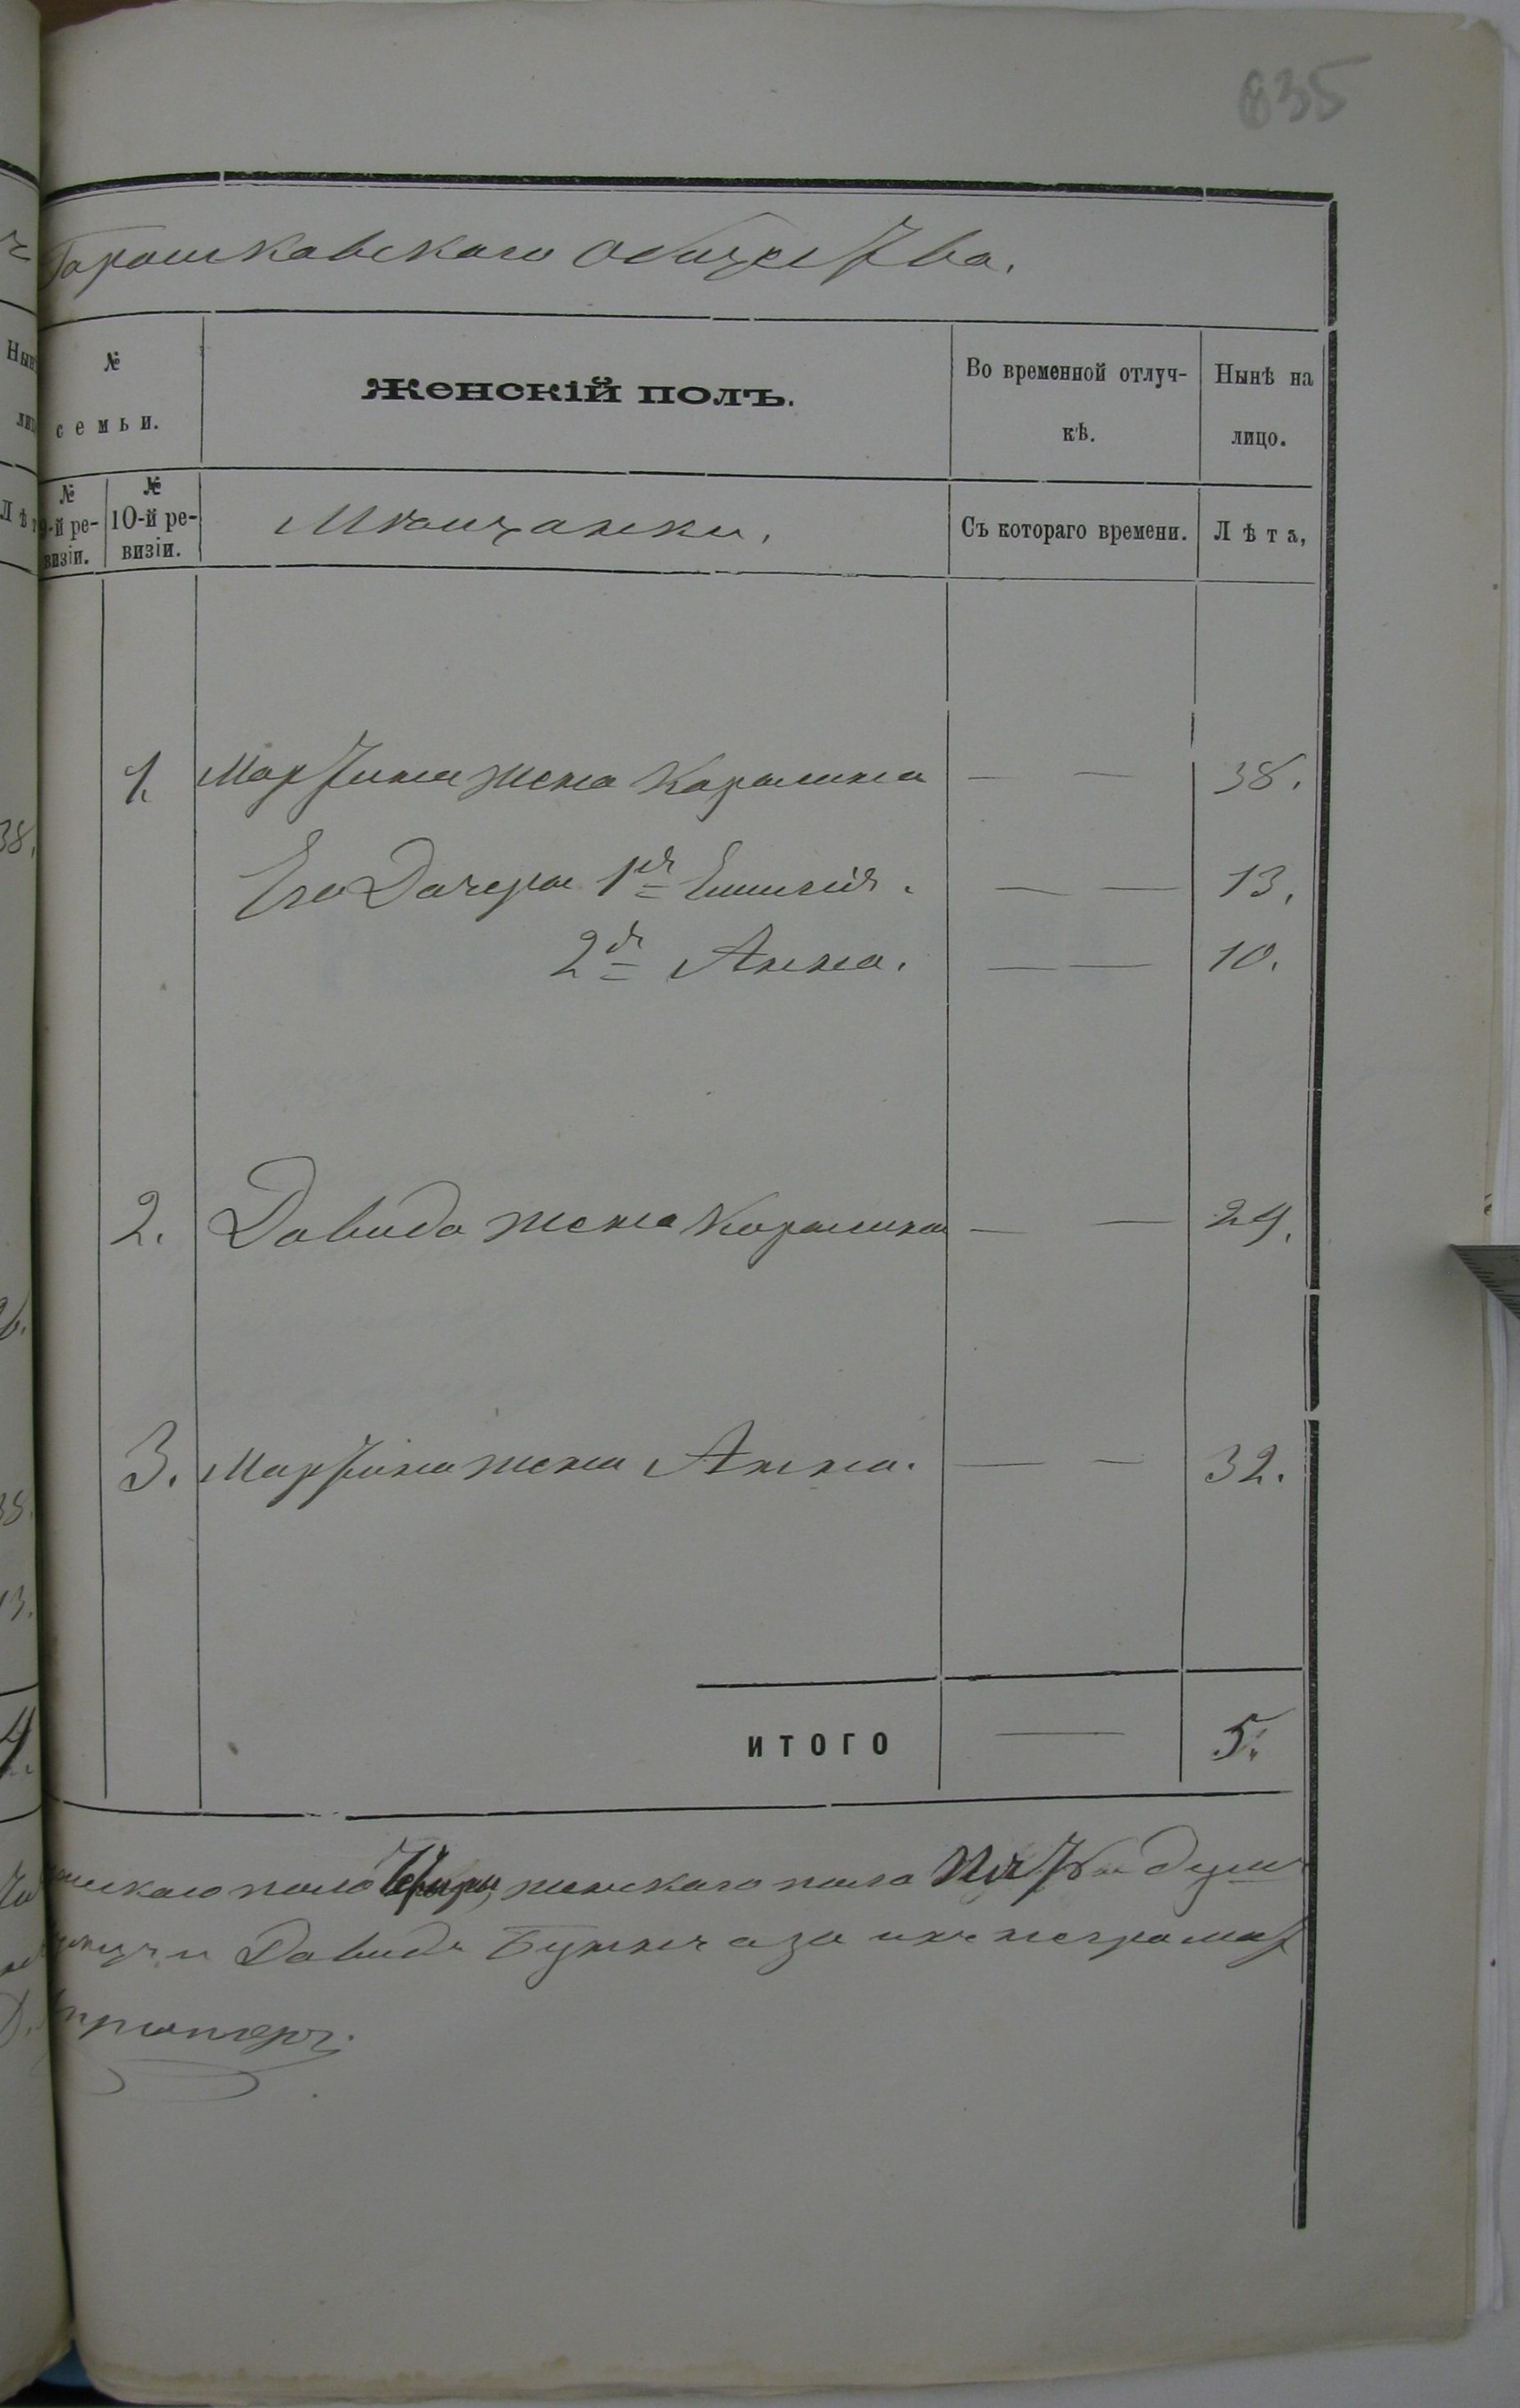 835
Горошковскаго общества.
№
семьи.
Женскій полъ.
Во временной отлуч-
кѣ.
Нынѣ на
лицо.
№
9-й ре-
визіи.
№
10-й ре-
визіи.
Мѣщанки.
Съ котораго времени.
Лѣта,
1. Мартина жена Каролина — — 38.
Его Дочери 1я Емилія. — — 13.
2я Анна. — — 10.
2. Давида жена Каролина — — 24.
3. Мартина жена Анна. — — 32.
ИТОГО — 5.
пола Четыре, женскаго пола Пять душъ
Давидъ а за ихъ неграмот